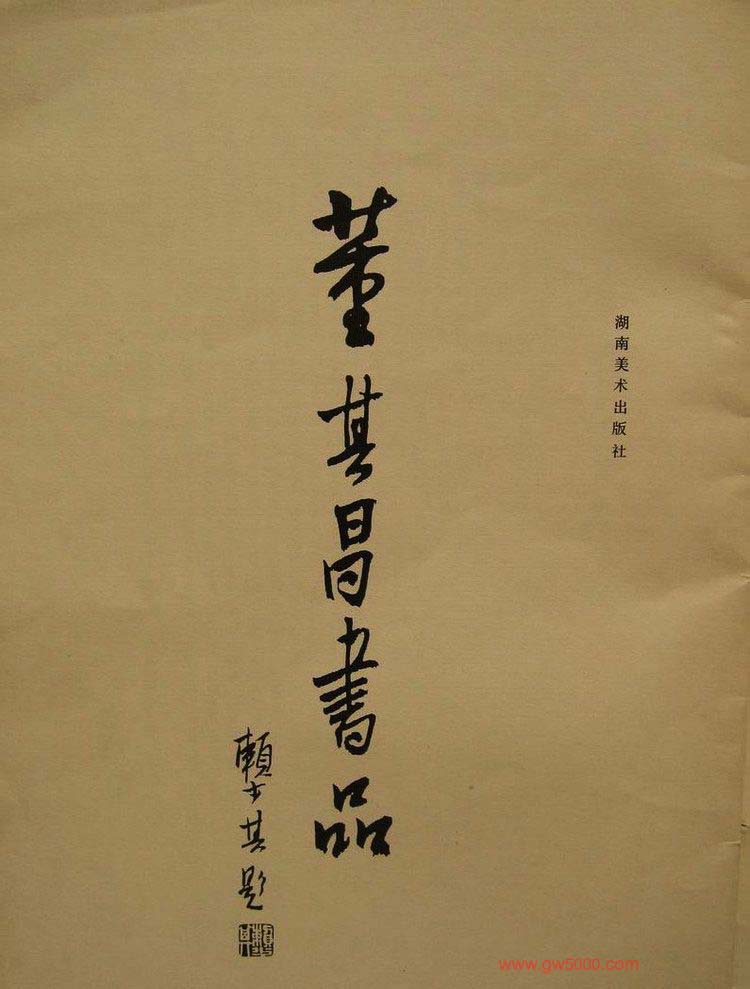 湖南美术出版社
董其昌書品
賴少其題
www.gw5000.com